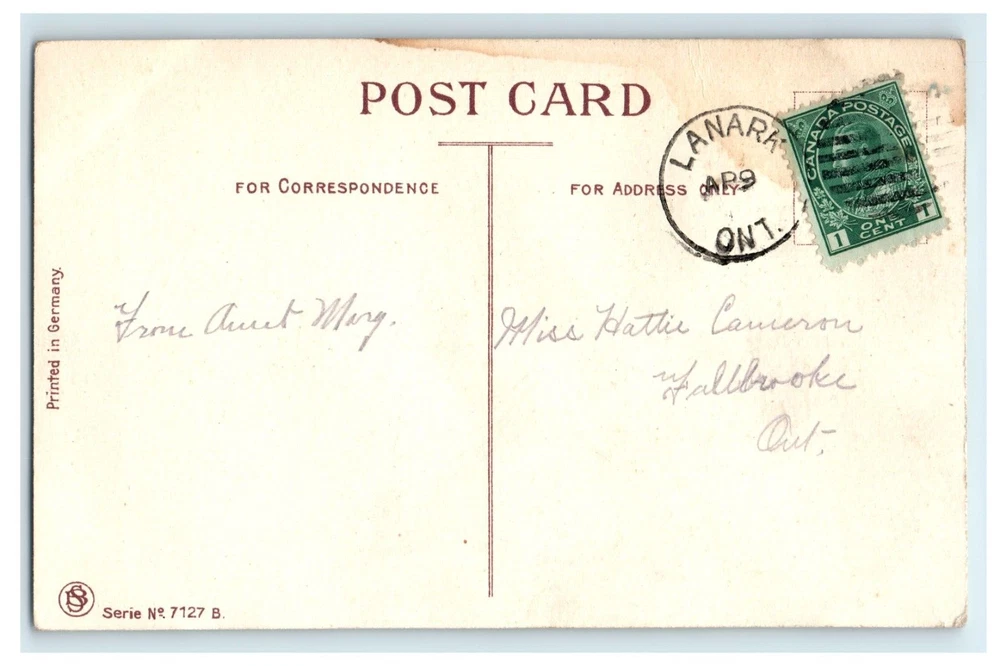 POST CARD
FOR CORRESPONDENCE
FOR ADDRESS ONLY
LANARK
AP 9
ONT.
CANADA POSTAGE
1 ONE CENT 1
From Aunt Marg.
Miss Hattie Cameron
Fallbrooke
Ont.
Printed in Germany.
Serie No. 7127 B.